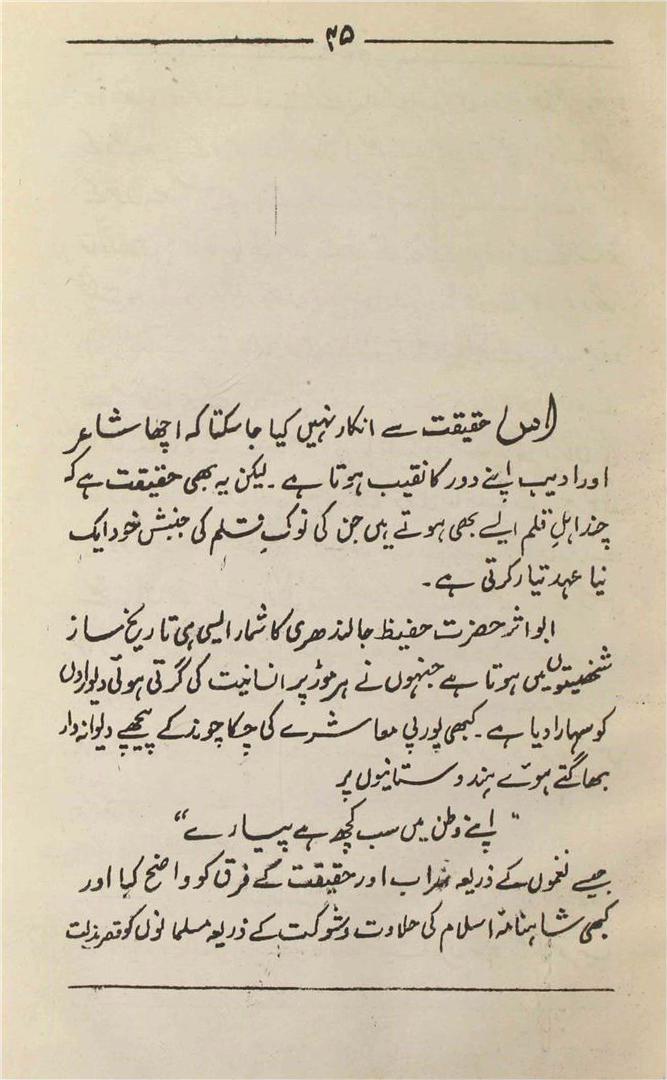 ۳۵
اس حقیقت سے انکار نہیں کیا جا سکتا کہ اچھا شاعر
اور ادیب اپنے دور کا نقیب ہوتا ہے ۔ لیکن یہ بھی حقیقت ہے کہ
چند اہلِ قلم ایسے بھی ہوتے ہیں جن کی نوکِ قلم کی جنبش خود ایک
نیا عہد تیار کرتی ہے ۔
ابو اثر حضرت حفیظ جالندھری کا شمار ایسی ہی تاریخ ساز
شخصیتوں میں ہوتا ہے جنہوں نے ہر موڑ پر انسانیت کی گرتی ہوئی دیواروں
کو سہارا دیا ہے ۔ کبھی یورپی معاشرے کی چکاچوند کے پیچھے دیوانہ وار
بھاگتے ہوئے ہندوستانیوں پر
"اپنے وطن میں سب کچھ ہے پیارے"
جیسے نغموں کے ذریعہ سراب اور حقیقت کے فرق کو واضح کیا اور
کبھی شاہنامۂ اسلام کی حلاوت و شوکت کے ذریعہ مسلمانوں کو قعرِ مذلت